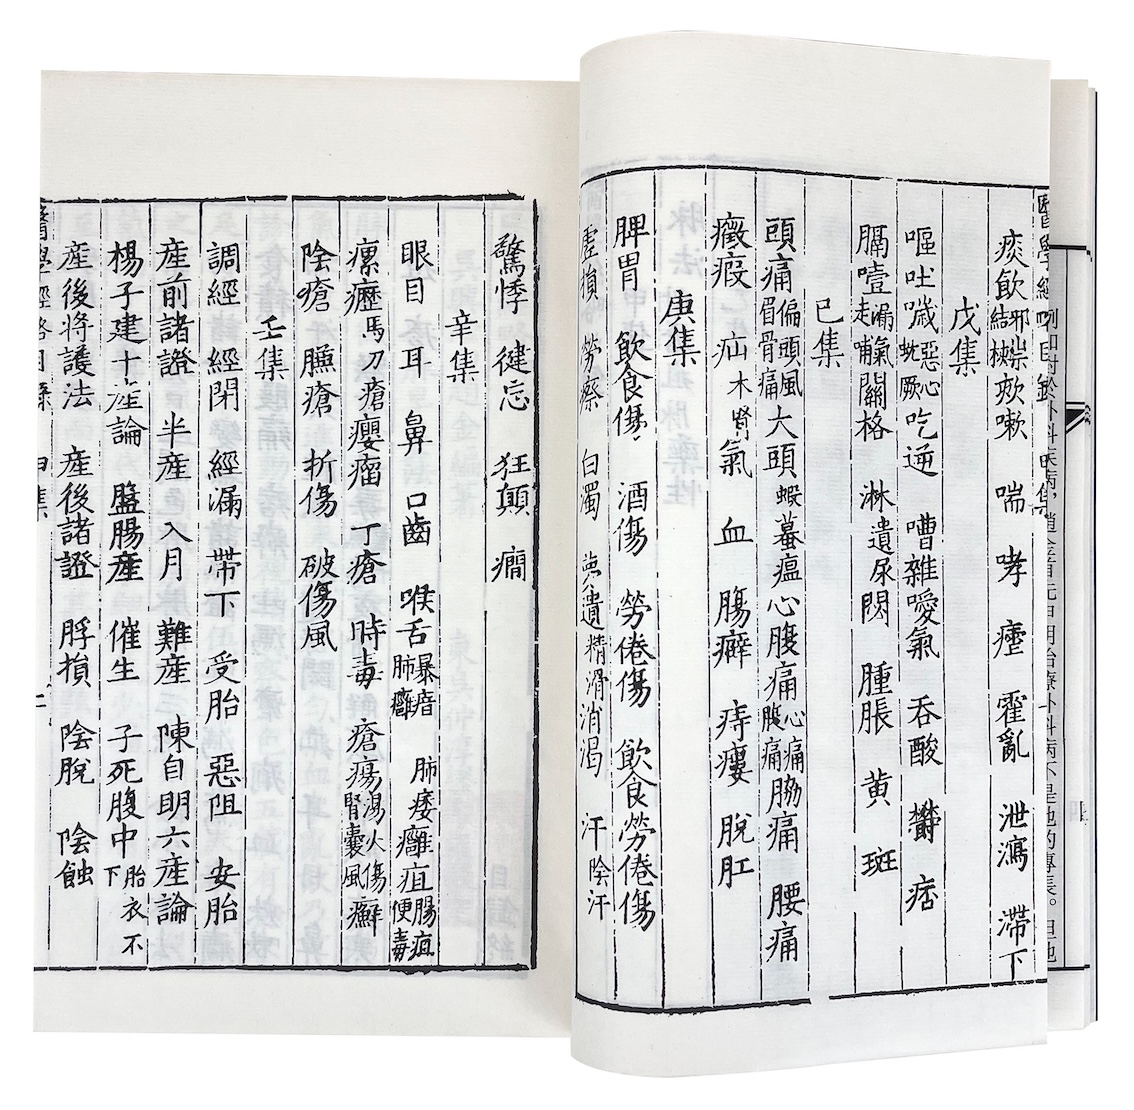 痰飲 邪祟結核 欬嗽 喘 哮 瘧 霍亂 泄瀉 滯下
戊集
嘔吐 噦惡心蚘厥 吃逆 嘈雜噯氣 吞酸 欝 痞
膈噎漏氣走哺 關格 淋遺尿閟 腫脹 黄 斑
已集
頭痛偏頭風眉骨痛 大頭蝦蟇瘟 心腹痛心痛腹痛 脇痛 腰痛
癥瘕 疝木腎 氣 血 腸癖 痔瘻 脫肛
庚集
脾胃 飲食傷 酒傷 勞倦傷 飲食勞倦傷
虛損 勞瘵 白濁 遺精滑 消渴 汗陰汗
驚悸 健忘 狂顛 癇
辛集
眼目 耳 鼻 口齒 喉舌暴瘖肺癰 肺痿 癰疽腸疽便毒
瘰癧馬刀瘡 癭瘤 丁瘡 時毒 瘡瘍湯火傷癬腎囊風
陰瘡 臁瘡 折傷 破傷風
壬集
調經 經閉 經漏 帶下 受胎 惡阻 安胎
産前諸證 半産 入月 難産 陳自明六産論
楊子建十産論 盤腸産 催生 子死腹中胎衣不下
産後將護法 産後諸證 脬損 陰脫 陰蝕